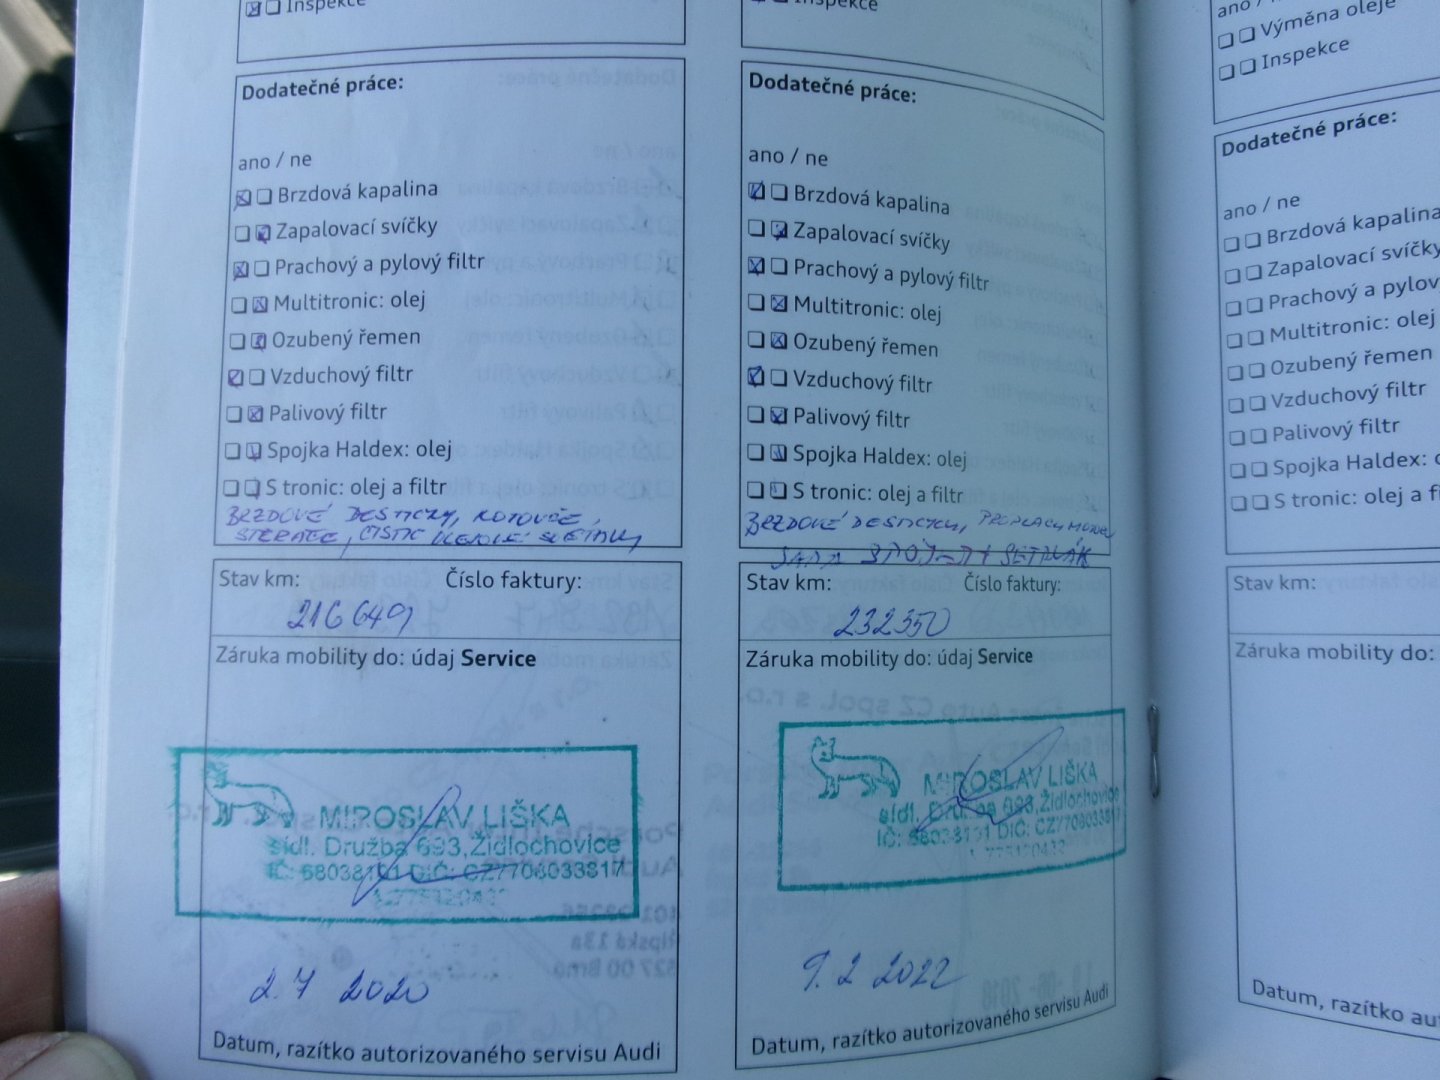 Inspekce
Dodatečné práce:
ano / ne
Brzdová kapalina
Zapalovací svíčky
Prachový a pylový filtr
Multitronic: olej
Ozubený řemen
Vzduchový filtr
Palivový filtr
Spojka Haldex: olej
S tronic: olej a filtr
BRZDOVÉ DESTICKY, KOTOUČE,
STĚRAČE, ČISTIČ
Stav km: Číslo faktury:
216649
Záruka mobility do: údaj Service
MIROSLAV LIŠKA
sídl. Družba 693, Židlochovice
IČ: 68038101 DIČ: CZ7706033817
2.7 2020
Datum, razítko autorizovaného servisu Audi
Inspekce
Dodatečné práce:
ano / ne
Brzdová kapalina
Zapalovací svíčky
Prachový a pylový filtr
Multitronic: olej
Ozubený řemen
Vzduchový filtr
Palivový filtr
Spojka Haldex: olej
S tronic: olej a filtr
BRZDOVÉ DESTICKY,
SADA SPOJKY SETRVAK
Stav km: Číslo faktury:
232350
Záruka mobility do: údaj Service
MIROSLAV LIŠKA
sídl. Družba 693, Židlochovice
9.2 2022
Datum, razítko autorizovaného servisu Audi
ano /
Výměna oleje
Inspekce
Dodatečné práce:
ano / ne
Brzdová kapalina
Zapalovací svíčky
Prachový a pylov
Multitronic: olej
Ozubený řemen
Vzduchový filtr
Palivový filtr
Spojka Haldex: o
S tronic: olej a fi
Stav km:
Záruka mobility do:
Datum, razítko au